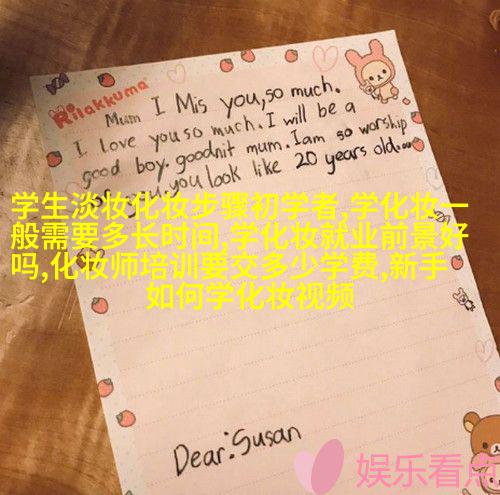 Rilakkuma
Mum I Mis you,so much.
I love you so much. I will be a
good boy. goodnit mum. I am so worship
you. you look like 20 years old.
学生淡妆化妆步骤初学者,学化妆一
般需要多长时间,学化妆就业前景好
吗,化妆师培训要交多少学费,新手
如何学化妆视频
Dear:Susan
娱乐看点